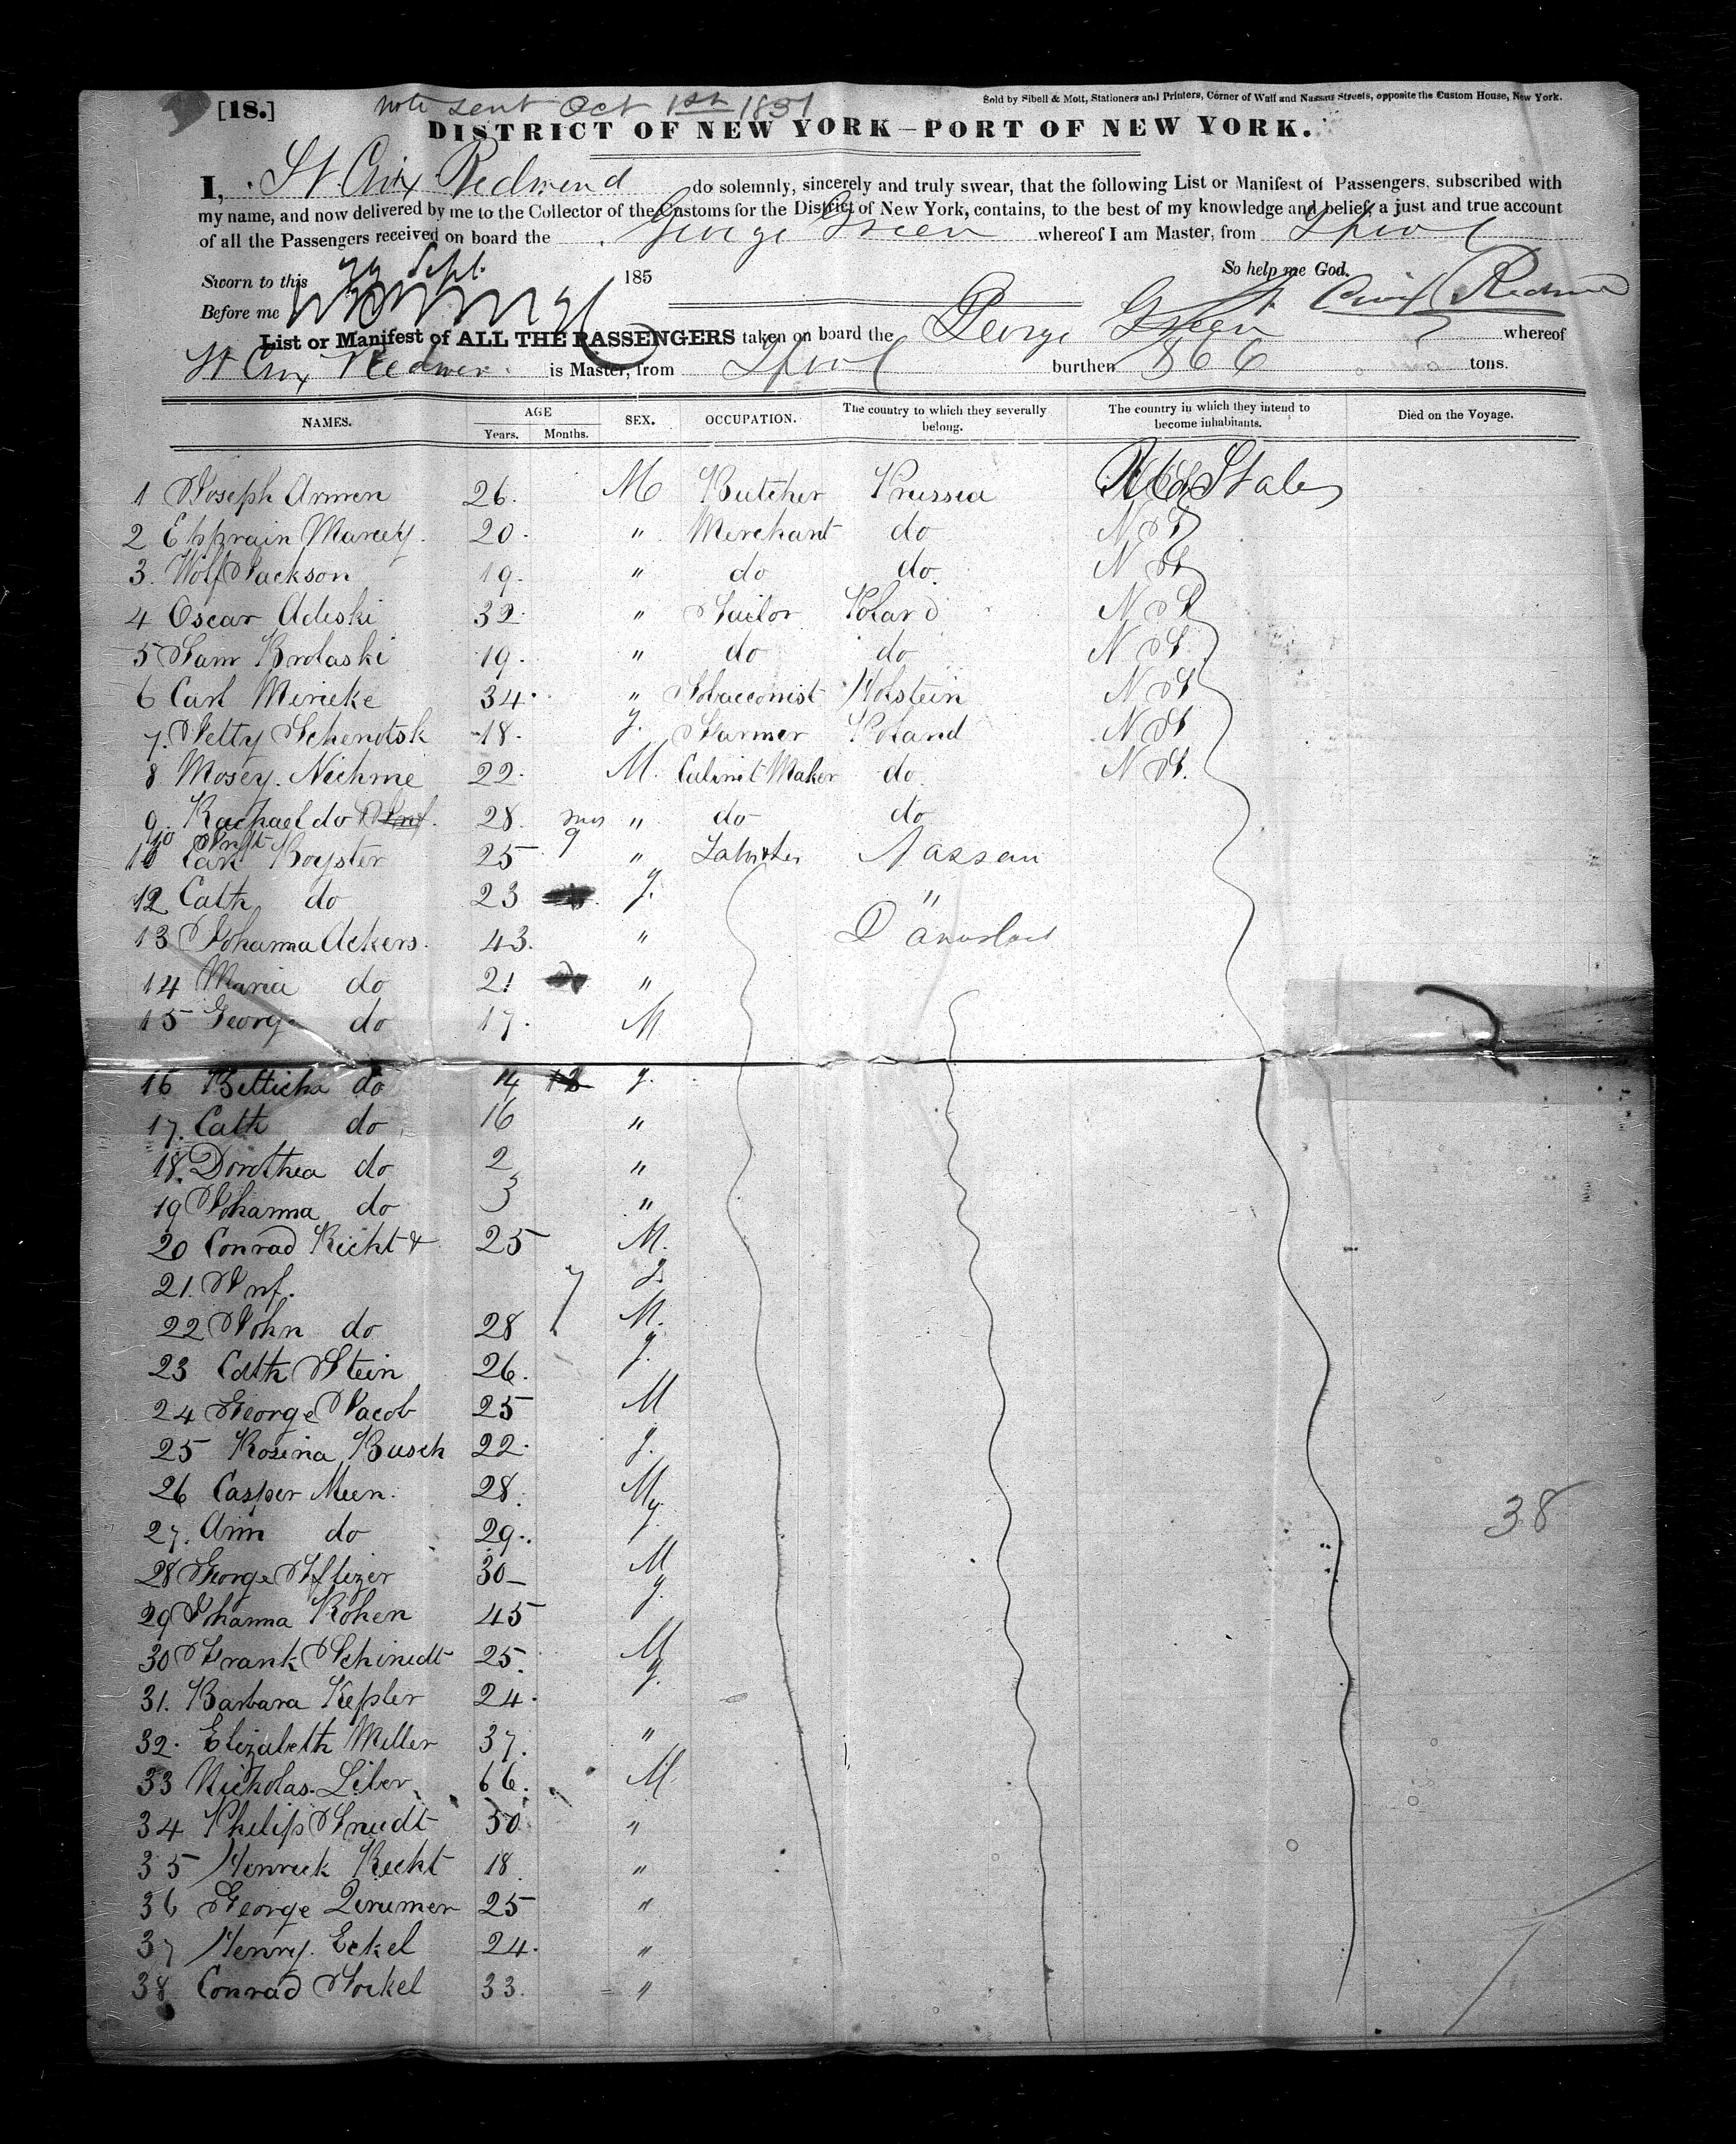 [18.] note sent Oct 1st 1851
Sold by Sibell & Mott, Stationers and Printers, Corner of Wall and Nassau Streets, opposite the Custom House, New York.
DISTRICT OF NEW YORK—PORT OF NEW YORK.
I, St Croix Redmond do solemnly, sincerely and truly swear, that the following List or Manifest of Passengers, subscribed with
my name, and now delivered by me to the Collector of the Customs for the District of New York, contains, to the best of my knowledge and belief, a just and true account
of all the Passengers received on board the George Green whereof I am Master, from Lpool
Sworn to this 29 Sept. 185 So help me God.
Before me St Croix Redmond
List or Manifest of ALL THE PASSENGERS taken on board the George Green whereof
St Croix Redmon is Master, from Lpool burthen 866 tons.
NAMES. AGE Years. Months. SEX. OCCUPATION. The country to which they severally belong. The country in which they intend to become inhabitants. Died on the Voyage.
1 Joseph Armen 26. M Butcher Prussia States
2 Ephraim Marcey. 20. " Merchant do
3. Wolf Jackson 19. " do do.
4 Oscar Adeski 32. " Tailor Poland
5 Sam Brolaski 19. " do do
6 Carl Miricke 34. " Tobacconist Holstein
7. Petty Schenotsk 18. f. Farmer Poland
8 Mosey. Nichme 22. M. Cabinet Maker do.
9. Rachael do 28. mos " do do
10 Inft 9
11 Carl Boyster 25 " Nassau
12 Cath do 23 f. "
13 Johanna Ackers. 43. "
14 Maria do 21 "
15 George do 17. M
16 do 14 f.
17. Cath do 16 "
18. Dorothea do 2 "
19 Johanna do 3 "
20 Conrad Richt & 25 M.
21. Inf. 7 f.
22 John do 28 M.
23 Cath Stein 26. f.
24 George Jacob 25 M
25 Rosina Busch 22. f.
26 Casper Meen. 28. M
27. Ann do 29. f.
28 George 30 M
29 Johanna Kohen 45 f.
30 Frank Schmidt 25. M
31. Barbara Kepler 24. f.
32. Elizabeth Miller 37. "
33 Nicholas Liber 66. M.
34 Philip Smidt 30 "
35 Henrick Richt 18 "
36 George 25 "
37 Henry. Eckel 24. "
38 Conrad 33. "
38